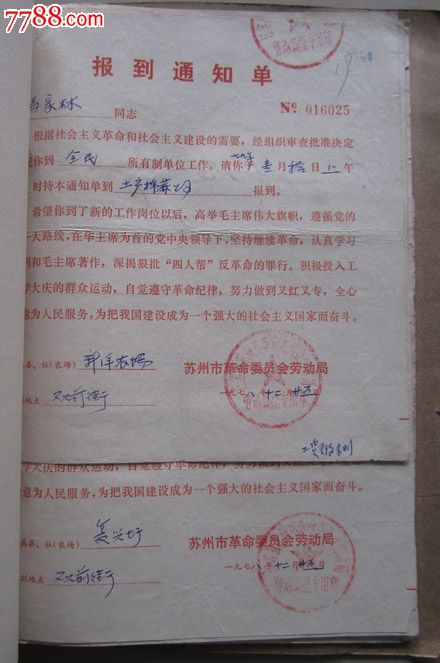 7788.com
报到通知单
家林 同志
№ 016025
根据社会主义革命和社会主义建设的需要，经组织审查批准决定
你到 全民 所有制单位工作。请你于 七九年 壹月拾日上午
时持本通知单到 土产棉麻公司 报到。
希望你到了新的工作岗位以后，高举毛主席伟大旗帜，遵循党的
路线，在华主席为首的党中央领导下，坚持继续革命，认真学习
列和毛主席著作，深揭狠批“四人帮”反革命的罪行。积极投入工
学大庆的群众运动，自觉遵守革命纪律，努力做到又红又专，全心
意为人民服务，为把我国建设成为一个强大的社会主义国家而奋斗。
县、社(农场)
苏州市革命委员会劳动局
地点 前街
一九七八年十二月廿五日
学大庆的群众运动，自觉遵守革命纪律，努力做到又红又专，全心
意为人民服务，为把我国建设成为一个强大的社会主义国家而奋斗。
县、社(农场) 复兴圩
苏州市革命委员会劳动局
到地点 前街
一九七八年十二月廿五日